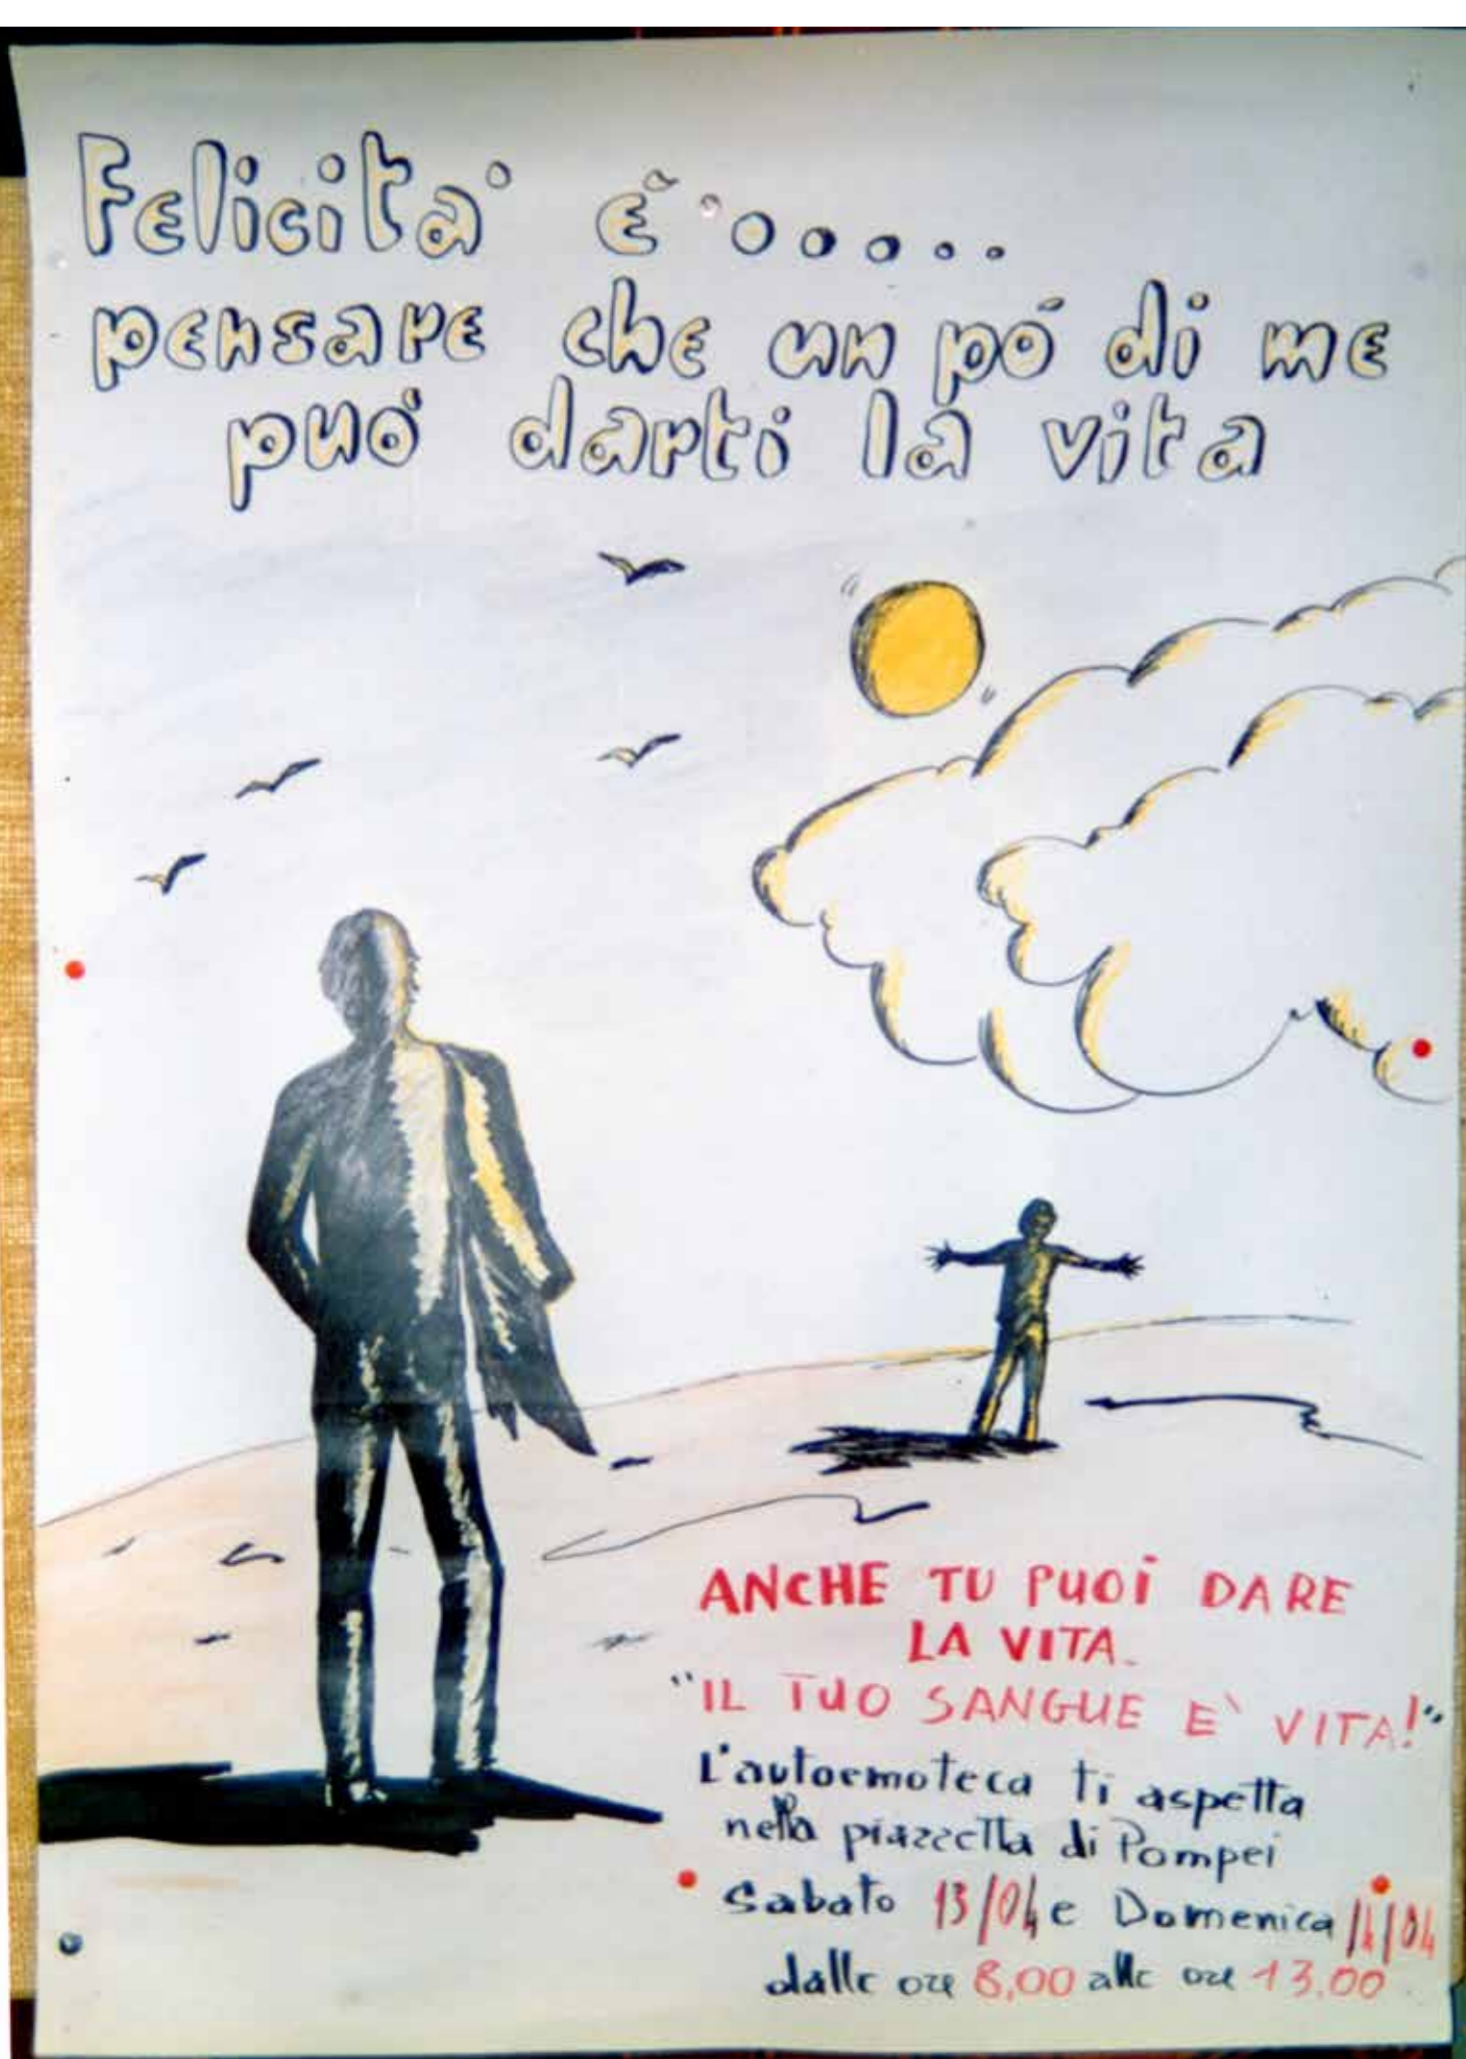 Felicita' è.....
pensare che un pó di me
puó darti la vita
ANCHE TU PUOI DARE
LA VITA.
"IL TUO SANGUE E' VITA!"
L'autoemoteca ti aspetta
nella piazzetta di Pompei
Sabato 13/04 e Domenica 14/04
dalle ore 8,00 alle ore 13.00